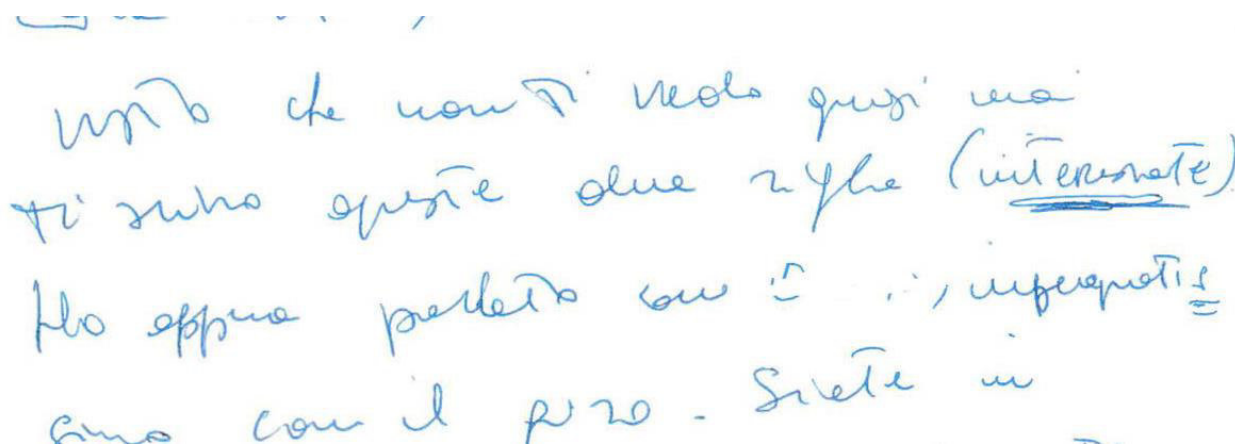 visto che non ti vedo quasi mai
ti scrivo queste due righe (interessate)
Ho appena parlato con , impegnatis
simo con il pizzo. Siete in